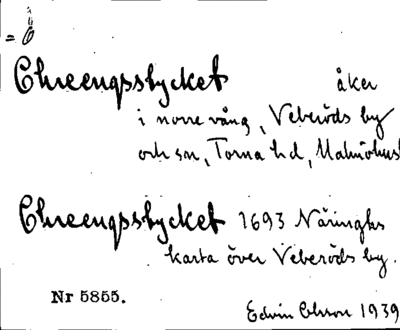 = ö
Chreengsstycket åker
i norre vång, Veberöds by
och sn, Torna hd, Malmöhus
Chreengsstycket 1693 Näringks
karta över Veberöds by.
Nr 5855.
Edvin Ohlson 1939